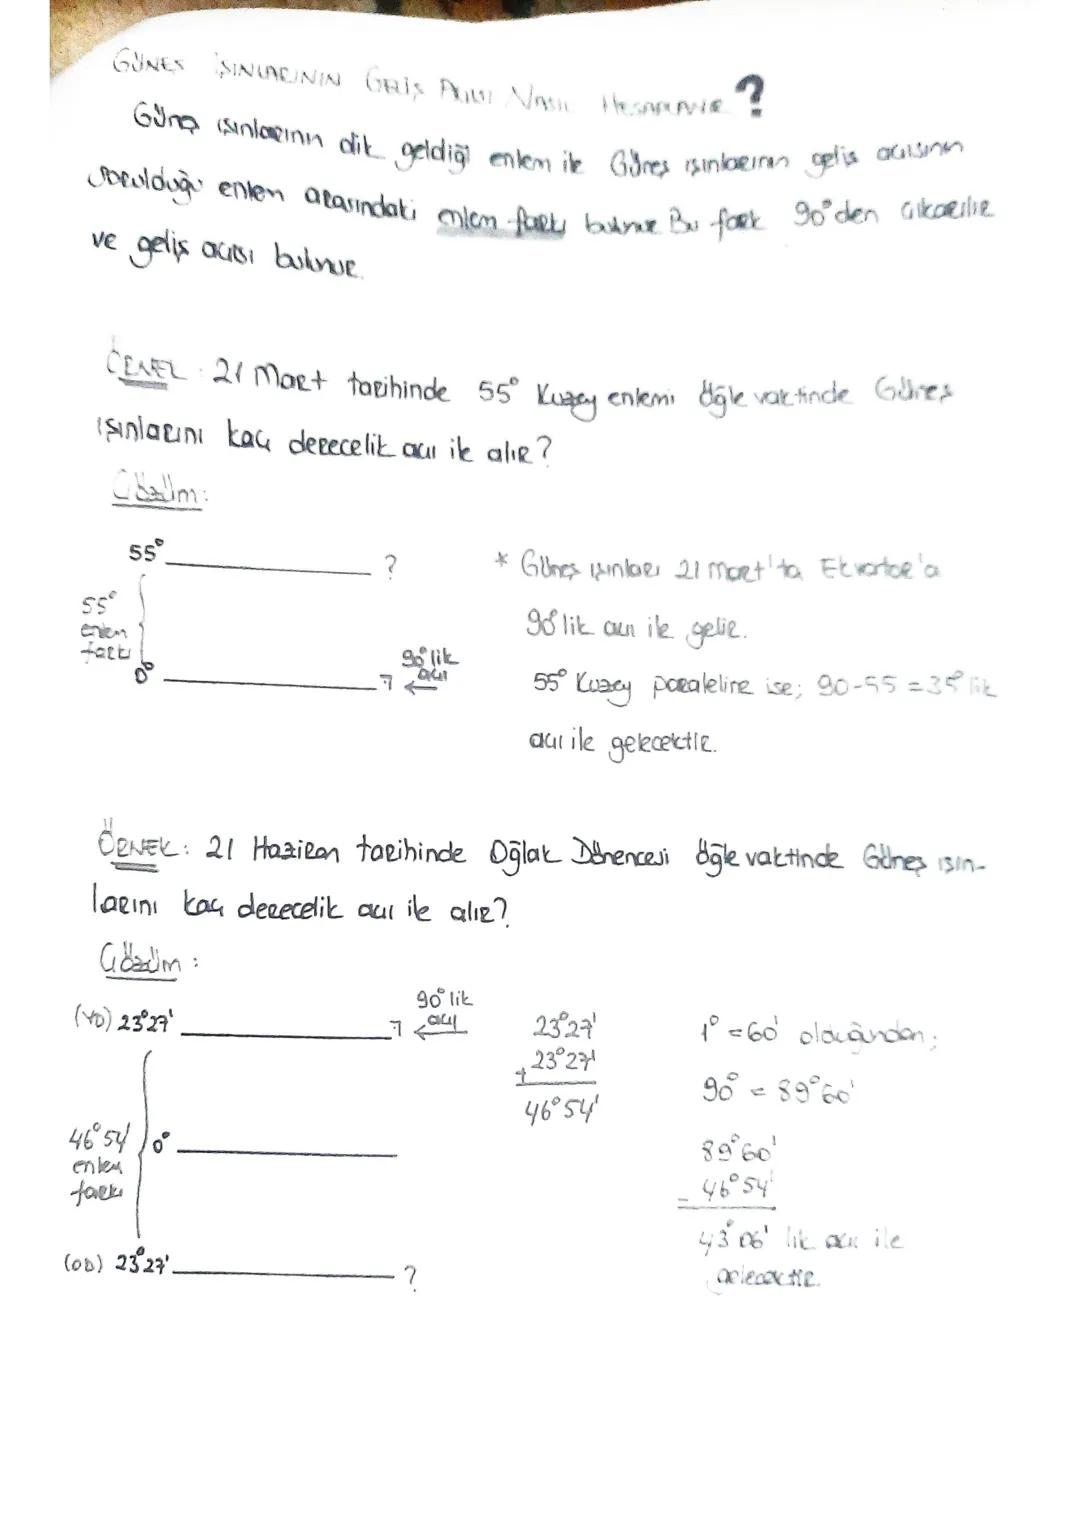 GÜNEŞ IŞINLARININ GELİŞ AÇISI NASIL HESAPLANIR?
Güneş ışınlarının dik geldiği enlem ile Güneş ışınlarının geliş açısının
sorulduğu enlem arasındaki enlem farkı bulunur. Bu fark 90°den çıkarılır
ve geliş açısı bulunur.
ÖRNEK: 21 Mart tarihinde 55° Kuzey enlemi öğle vaktinde Güneş
ışınlarını kaç derecelik açı ile alır?
Çözüm:
55° ?
55°
enlem
farkı
0°
90°lik
açı
* Güneş ışınları 21 Mart'ta Ekvator'a
90°lik açı ile gelir.
55° Kuzey paralelire ise; 90-55 = 35°lik
açı ile gelecektir.
ÖRNEK: 21 Haziran tarihinde Oğlak Dönencesi öğle vaktinde Güneş ışın-
larını kaç derecelik açı ile alır?
Çözüm:
(YD) 23°27'
90°lik
açı
46°54'
enlem
farkı
0°
(OD) 23°27' ?
23°27'
+ 23°27'
46°54'
1° = 60' olduğundan;
90° = 89°60'
89°60'
- 46°54'
43°06' lık açı ile
gelecektir.